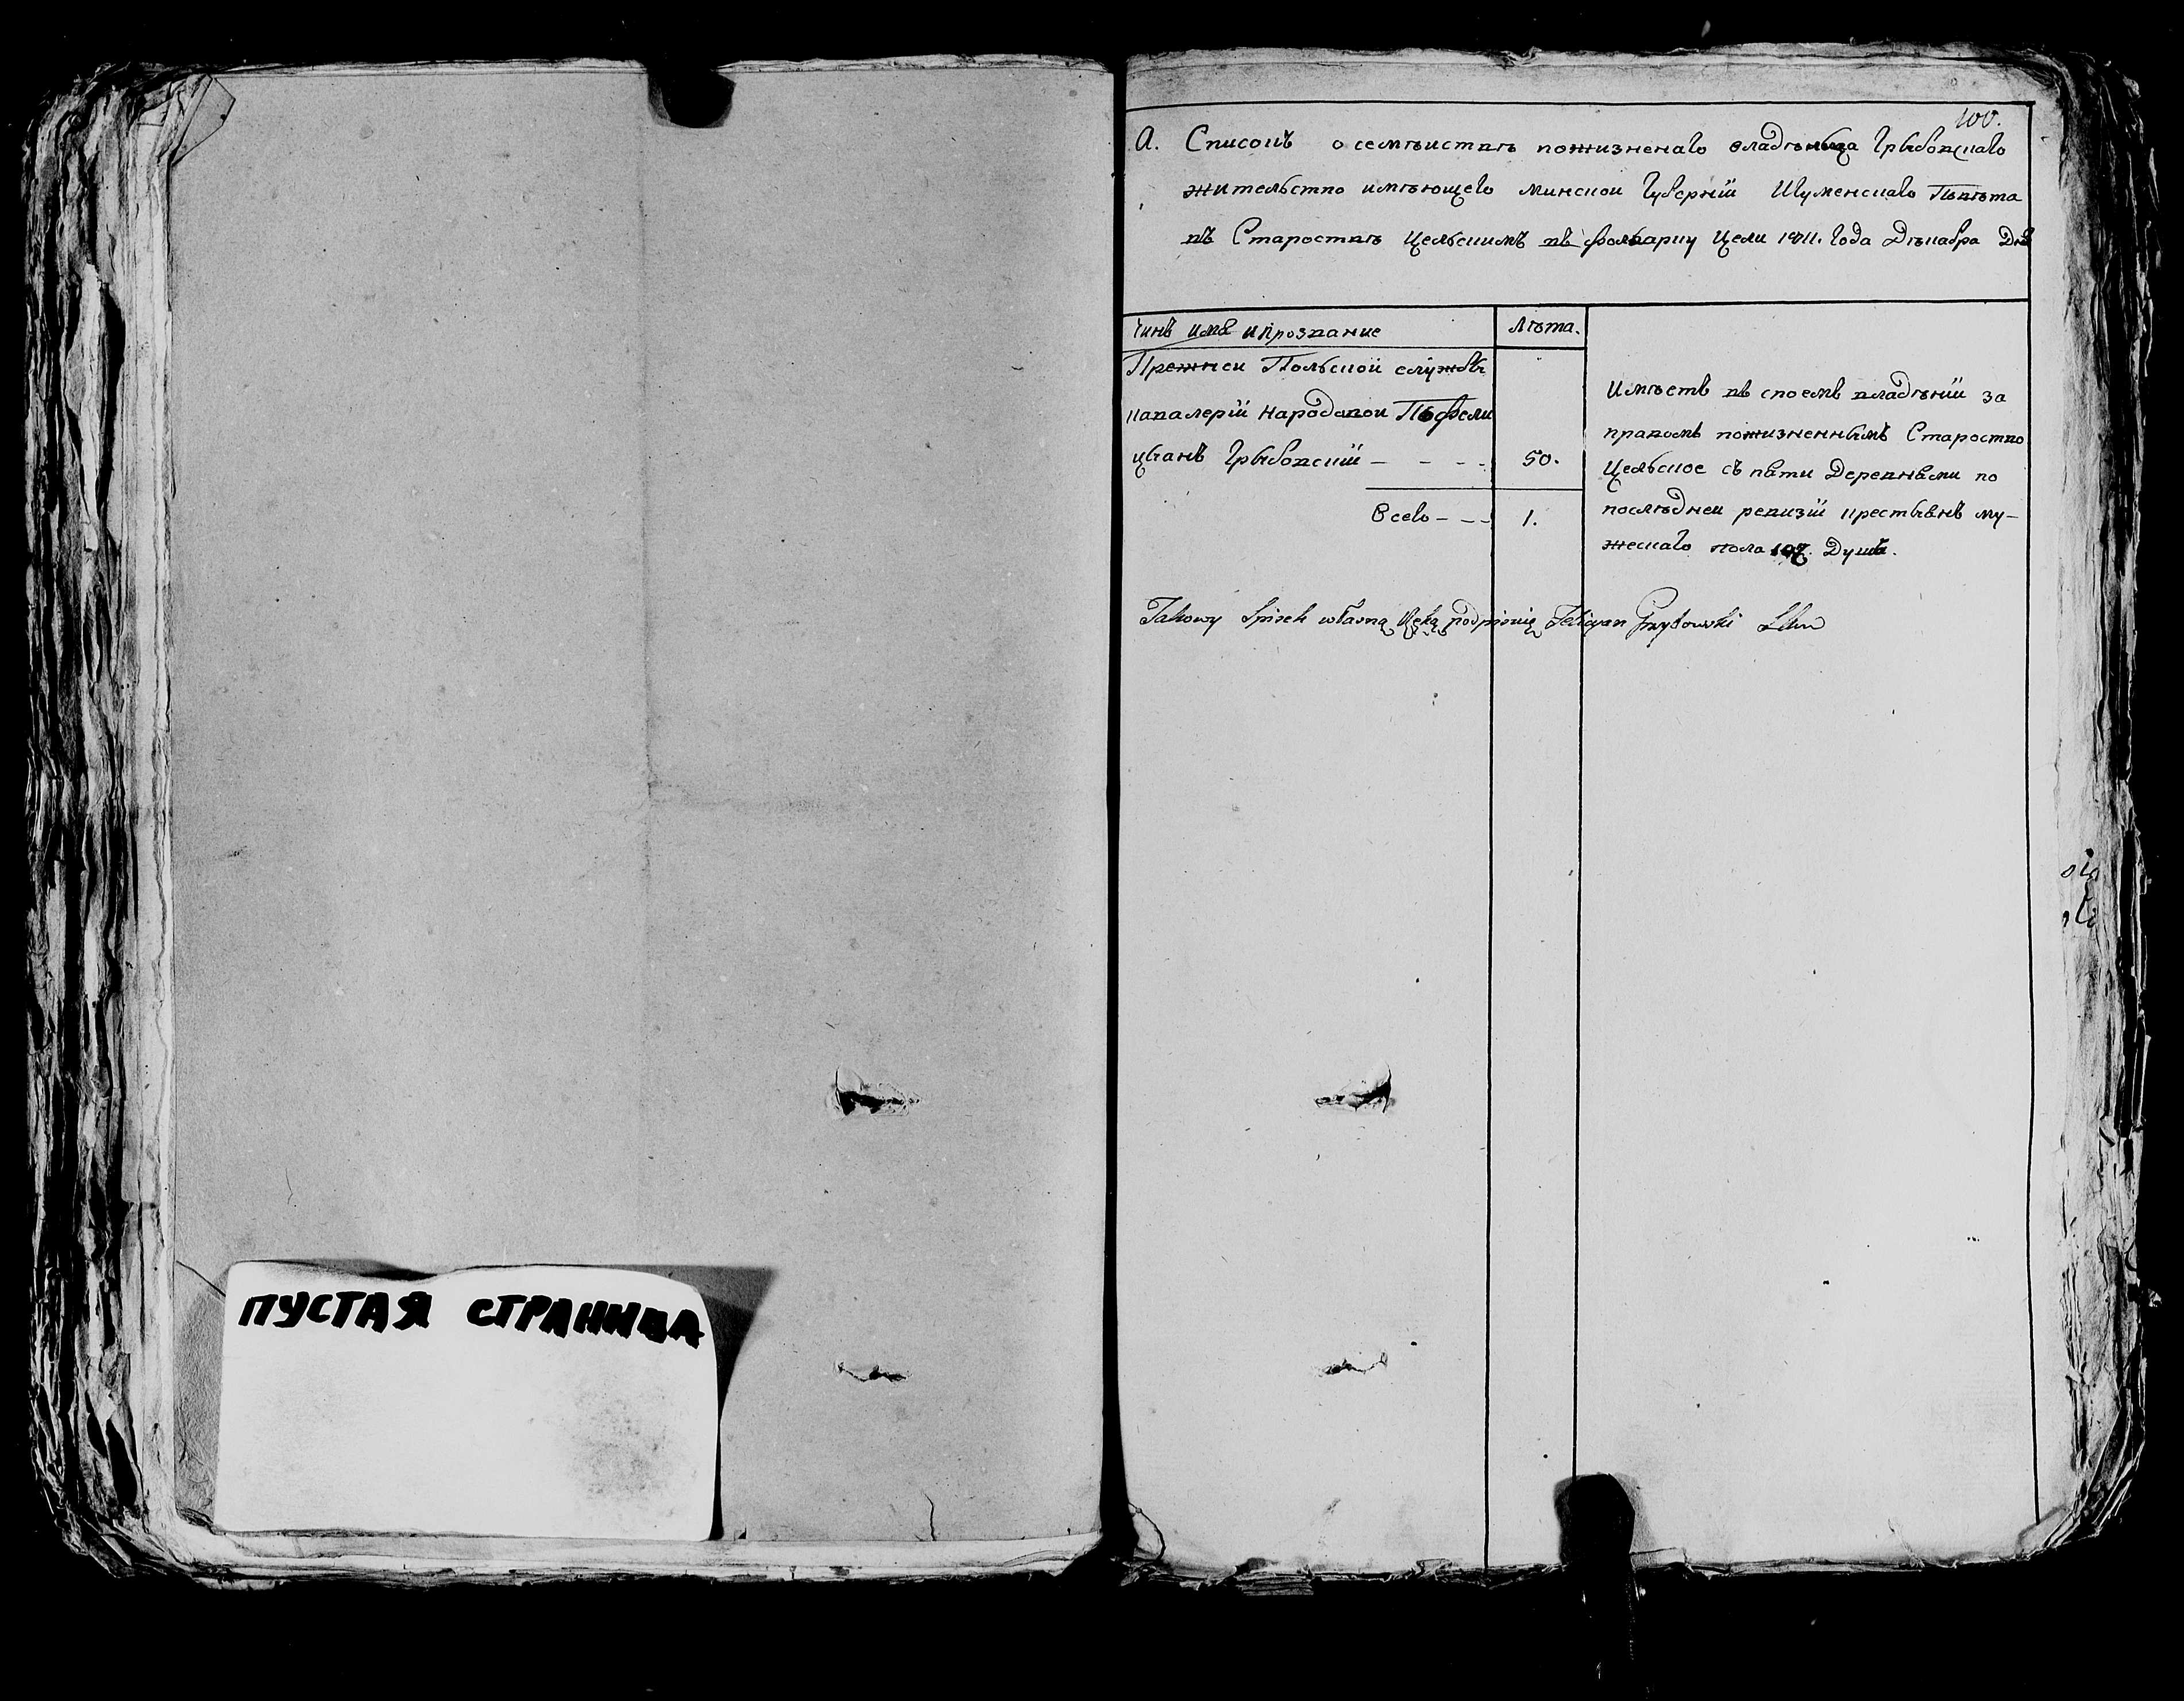 ПУСТАЯ СТРАНИЦА
100.
А. Списокъ о семѣиствѣ пожизненаго владѣльца Грыбовскаго
жительство имѣющего минской Губерніи Игуменскаго Повѣта
въ Староствѣ Цельскимъ въ фольварку Цели 1811. Года Дѣкабра Днѣ
Чинъ имя и прозвание
Лѣта.
Прежнеи Польской службы
кавалеріи народовои
цыанъ Грыбовскій – - - -
50.
Всего – - -
1.
имѣетъ въ своемъ владѣніи за
правомъ пожизненнымъ Староство
Цельское съ пяти Деревнями по
послѣднеи ревизіи крестьянъ му-
жескаго пола 107. Душъ.
Takowy Spisek własną Ręką podpisuię Felicyan Grzybowski